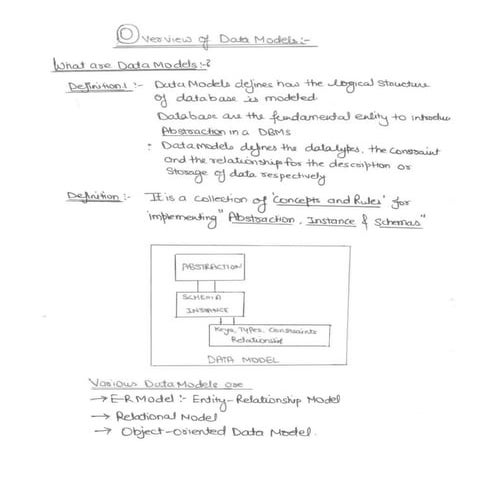 Overview of Data Models:-
What are Data Models:-?
Definition1:- Data Models defines how the logical structure
of database is modeled.
Database are the fundamental entity to introduce
Abstraction in a DBMS
Data Models defines the datatypes, the constraint
and the relationship for the description or
storage of data respectively
Definition:- It is a collection of 'concepts and Rules' for
implementing "Abstraction, Instance & Schemas"
ABSTRACTION
SCHEMA
INSTANCE
Keys, Types, Constraints
Relationship
DATA MODEL
Various Data Models are
→ E-R Model:- Entity-Relationship Model
→ Relational Model
→ Object-oriented Data Model.